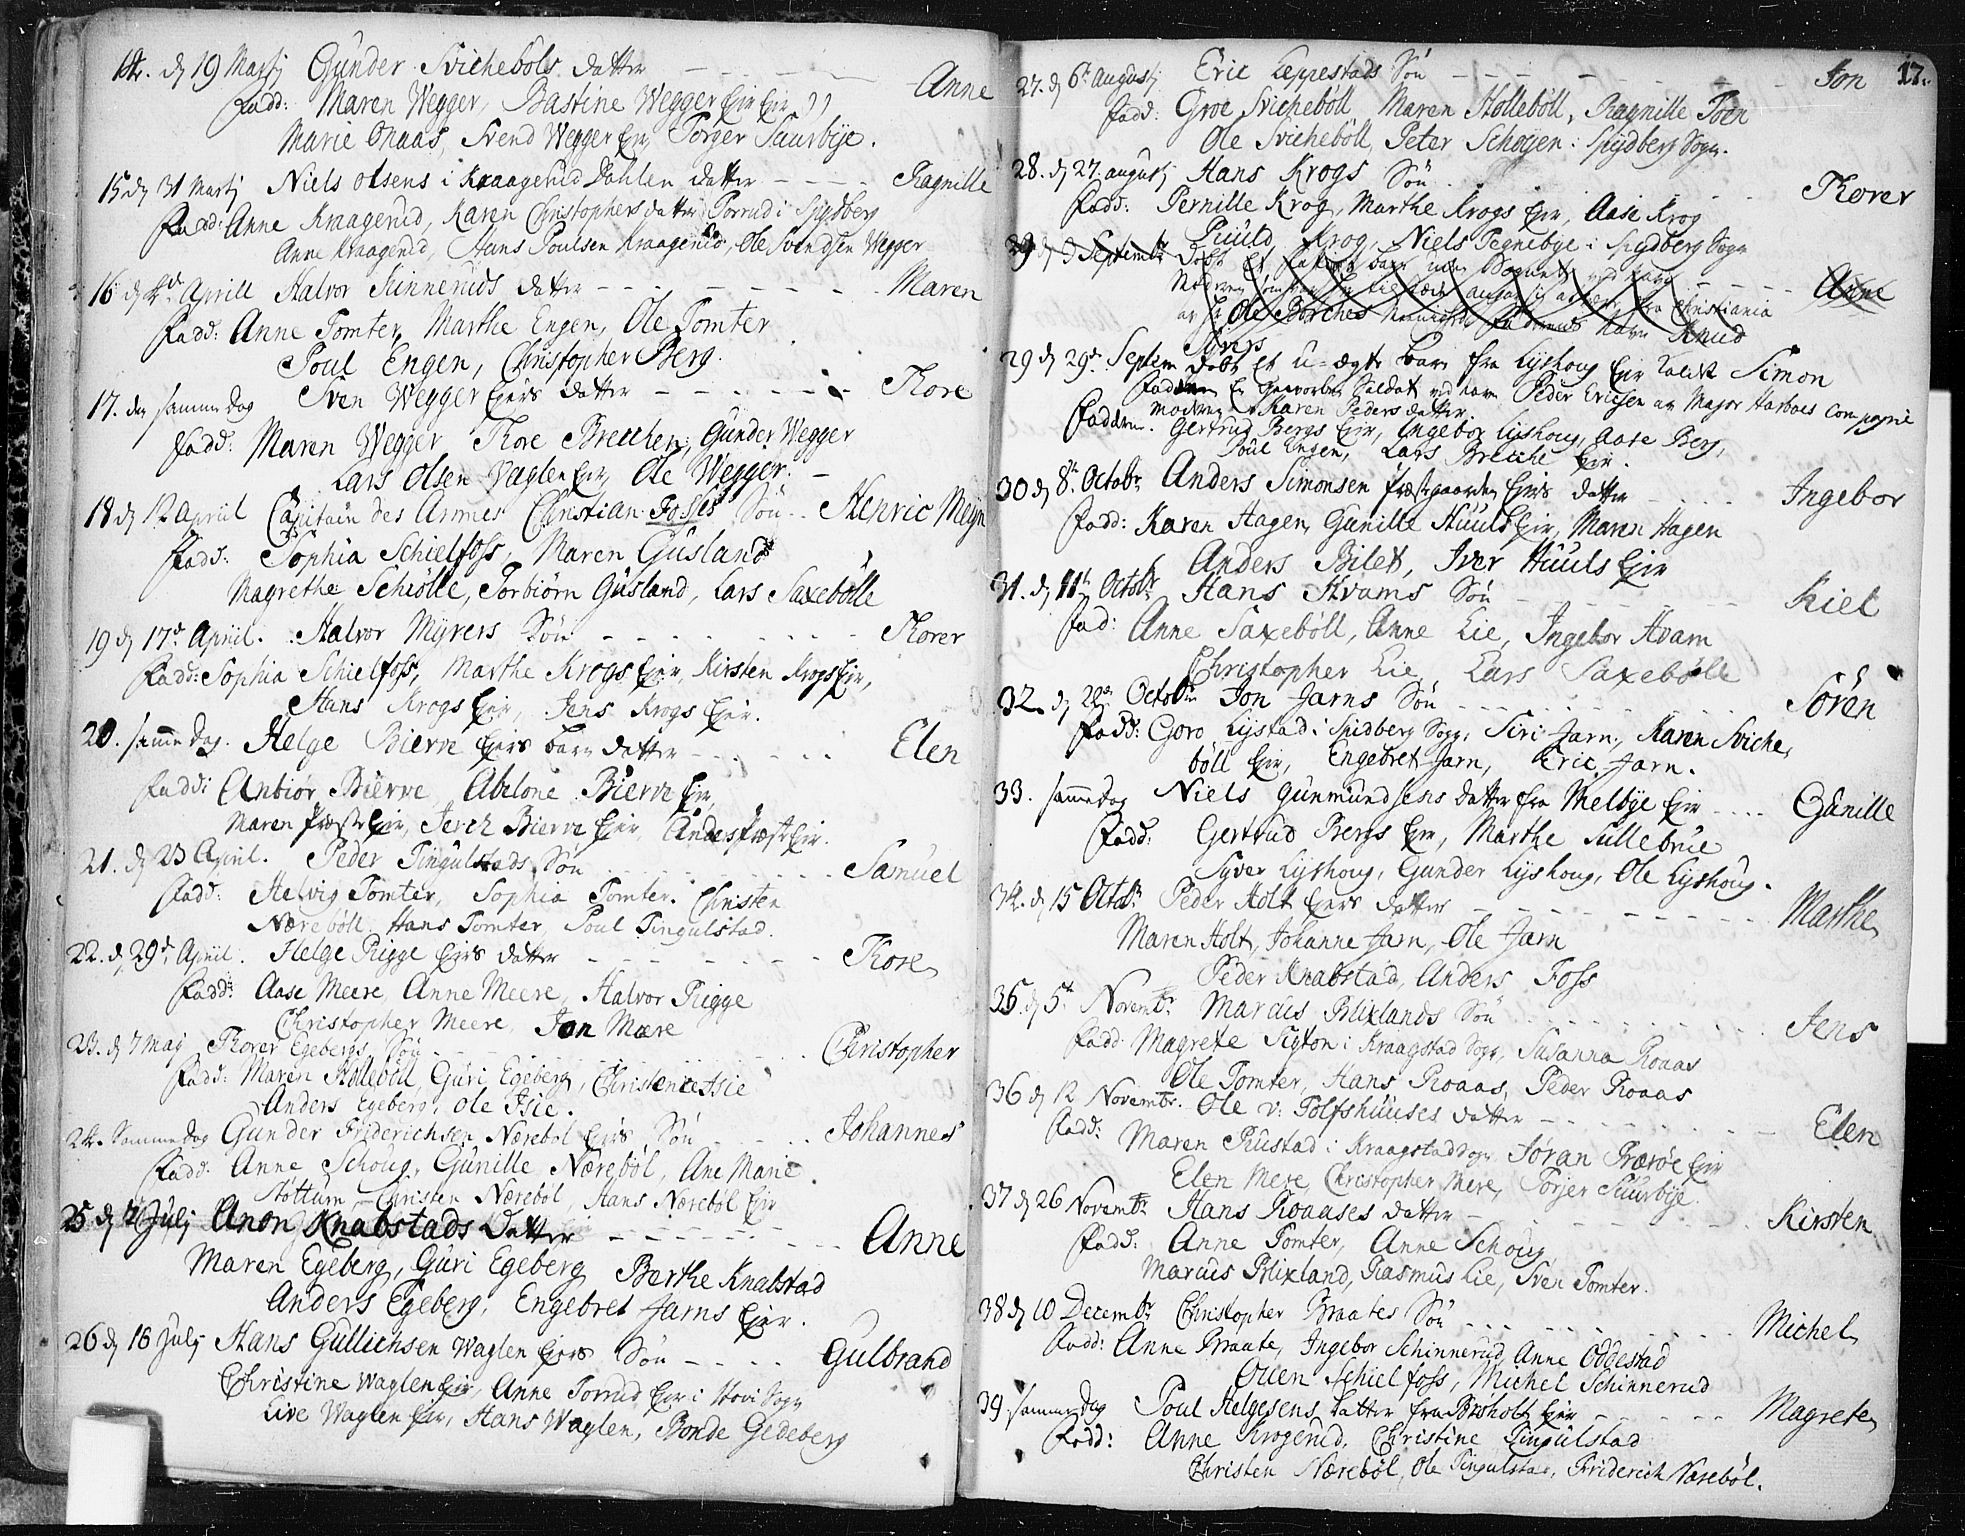 14. d 19 Martj Gunder Svichebøls datter - - - - Anne
Fadd: Maren Wegger, Bastine Wegger Eier Eier
Marie Onaas, Svend Wegger Eier Torger Saurbye.
15 d 31 Martj Niels Olsens i Kraagerud Dahlen datter - - - - Ragnille
Fadd: Anne Kraagerud, Karen Christophersdatter Torrud i Spydberg
Anne Kraagerud, Hans Poulsen Kraagerud, Ole Svendsen Wegger
16 d 2d Aprill Halvor Kinneruds datter - - - - - Maren
Fadd: Anne Tomter, Marthe Engen, Ole Tomter
Poul Engen, Christopher Berg.
17. den samme dag Sven Wegger Eiers datter - - - - - Thore
Fadd: Maren Wegger Thore Brecchen, Gunder Wegger
Lars Olsen Vaglen Eier, Ole Wegger. -
18 d 12 April Capitain des Armes Christian Fosses Søn - - Henric Meyn
Fadd: Sophia Schielfoss, Maren Gusland
Magrethe Schiølle, Torbiørn Gusland, Lars Saxebølle
19 d 17d April. Halvor Myrers Søn - - - - - - - Thorer
Fadd: Sophia Schielfoss, Marthe Krogs Eier, Kirsten Krogs Eier,
Hans Krogs Eier, Jens Krogs Eier.
20. samme dag. Helge Bierve Eiers barn datter - - - - - Elen
Fadd: Anbiør Bierve Abelone Bierve Eier,
Maren Præst Eier, Bierve Eier Anders Præst Eier.
21. d 23 April. Peder Tingulstads Søn - - - - - Samuel
Fadd: Helvig Tomter, Sophia Tomter. Christen
Nærebøll Hans Tomter, Poul Tingulstad.
22. d. 29d April. Helge Rigge Eiers datter - - - - - - Thore
Fadd: Aase Meere, Anne Meere, Halvor Rigge
Christopher Meere, Jon Mære
23. d 7 Maj Thorer Egebergs Søn - - - - - Christopher
Fadd: Maren Hollebøll, Guri Egeberg, Christence Isie
Anders Egeberg, Ole Isie.
24. Samme dag Gunder Friderichsen Nærebøl Eiers Søn - - - - Johannes
Fadd. Anne Schoug, Gunille Nærebøl, Ane Marie
Nøttum, Christen Nærebøl, Hans Nærebøl Eier
25 d 2 Julj Anon Knabstads Datter - - - - - - Anne
Maren Egeberg, Guri Egeberg Berthe Knabstad
Anders Egeberg, Engebret Jarns Eier.
26 d 16 Julj Hans Gullichsen Waglen Eiers Søn - - - - Gulbrand
Christine Waglen Eier, Anne Torrud Eier i Hovi Sogn
Live Waglen Eier, Hans Waglen, Bonde Gedeberg
17.
27. d 6te Augustj Eric Leppestads Søn - - - - - - Jon
Fadd: Groe Svichebøll Maren Hollebøll, Ragnille Toen
Ole Svichebøll, Peter Schøyen i Spydberg Sogn.
28. d 27. Augustj Hans Krogs Søn - - - Thorer
Fadd: Pernille Krog, Marthe Krogs Eier, Aase Krog
Krog, Niels Tegnebye i Spydberg Sogn
29 d 3 Septembr Døbt Et barn - - - - Anne
Christiania
Ole Knud
29 d 29de Septem døbt Et U-ægte barn fra Lyshoug Eier kaldet Simon
Faderen En Geworben Soldat ved navn Peder Ericksen av Major Harboes Compagnie
Moderen Karen Pedersdatter.
Fadderne. Gertrud Bergs Eier, Ingebor Lyshoug, Aase Berg,
Poul Engen, Lars Brecche Eier.
30 d 8te Octobr Anders Simonsen Præstgaarden Eiers datter - - - - Ingebor
Fadd: Karen Hagen, Gunille Huuls Eier, Maren Hagen
Anders Bilet, Iver Huuls Eier
31. d 11te Octobr Hans Hvams Søn - - - - - - Kiel
Fad: Anne Saxebøll, Anne Lie, Ingebor Hvam
Christopher Lie, Lars Saxebølle
32. d 22de Octobr Jon Jarns Søn - - - - - - Søren
Fadd: Goro Lystad i Spidberg Sogn, Siri Jarn, Karen Sviche
bøll Eier, Engebret Jarn, Eric Jarn.
33. samme dag Niels Gunmundsens datter fra Melbye Eier - - - - Gunille
Fadd: Gertrud Bergs Eier, Marthe Sullebrue
Syver Lyshoug, Gunder Lyshoug, Ole Lyshoug.
34. d 15 Octobr Peder Holt Eiers datter - - - - - - - Marthe
Maren Holt, Johanne Jarn, Ole Jarn
Peder Knabstad, Anders Foss
35 d 5te Novembr Marcus Blixlands Søn - - - - - Jens
Fadd. Magrete Sigton i Kraagstad Sogn, Susanna Roaas
Ole Tomter, Hans Roaas, Peder Roaas
36 d 12 Novembr. Ole v: Tolfshuuses datter - - - - - - Elen
Fadd: Maren Rustad i Kraagstad Sogn Jøran Prærøe Eier
Elen Mere Christopher Mere, Torjer Suurbye.
37 d 26 Novembr Hans Roaases datter - - - - - Kirsten
Fadd: Anne Tomter, Anne Schoug
Marcus Blixland, Rasmus Lie, Sven Tomter.
38 d 10 Decembr Christopher Braates Søn - - - - - - Michel
Fadd: Anne Braate, Ingebor Schinnerud Anne Oddestad
Ollen Schielfoss, Michel Schinnerud
39 samme dag Poul Helgesens datter fra Brsholt Eier - - - - - Magrete
Fadd: Anne Krogerud, Christine Tingulstad
Christen Nærebøl, Ole Tingulstad, Friderich Nærebøl.